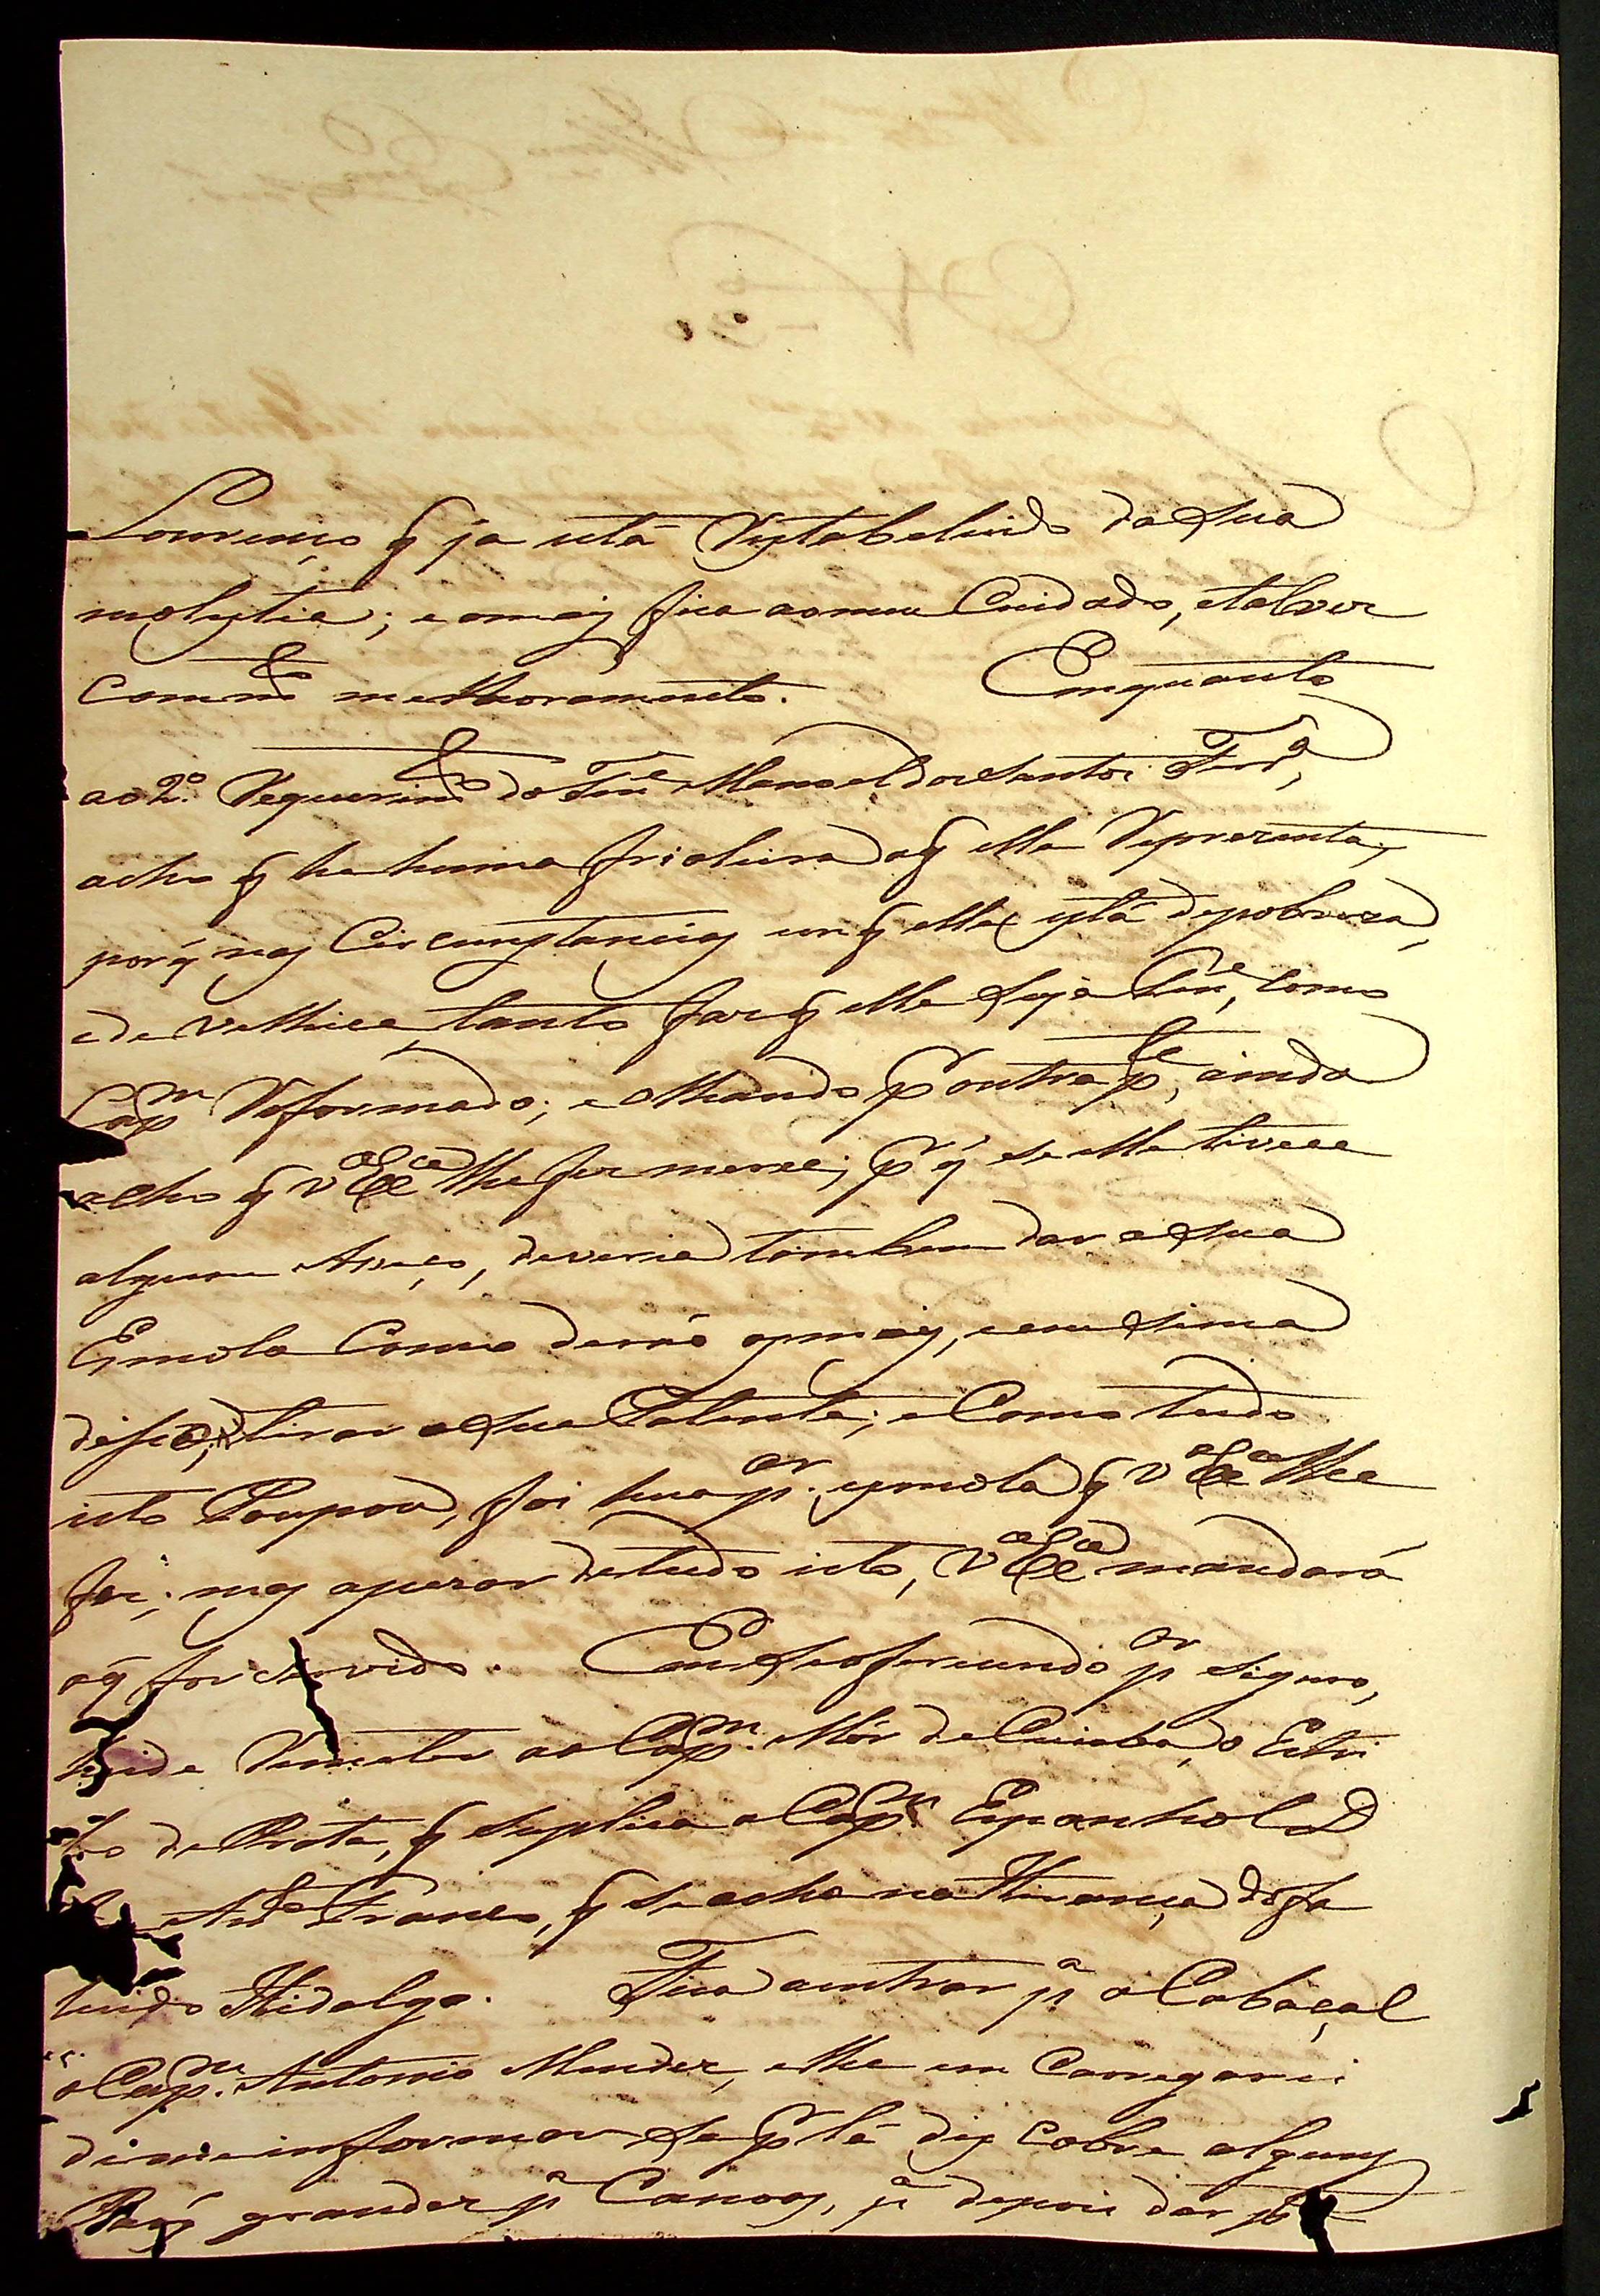 Lourenço q̃ ja está Restabelecido da Sua
molestia; e o mais fica ao meu Cuidado, e talvez
com m.to melhoramento. Emquanto
ao 2.º Requerim.to do Ten.e Manoel dos Santos Ferr.a,
acho q̃ he huma frioleira o q̃ elle Reprezenta;
porq̃ nas Circunstancias em q̃ elle está de pobreza,
e de velhice, tanto faz q̃ elle Seja Ten.e, como
Cap.m Reformado; e olhando p.r outra p.te, ainda
acho q̃ V Ex.ca lhe fez merce; p.r q̃ se elle tivece
algum Aceço, deveria tambem dar a Sua
Esmola Como derão os mais, e em Sima
disço, tirar a Sua Patente; e Como tudo
isto Poupou, foi hua p.ar esmola q̃ V Ex.ca lhe
fez; mas apezar de tudo isto, V Ex.ca mandará
o q̃ for Servido. Em Se oferecendo p.or Seguro,
hei de Remeter ao Cap.m Mór de Cuiaba, o Estri
bo de Prata, q̃ Suplica o Cap.m Espanhol D
Franco, q̃ Se acha na Herança do fa
lecido Hidalgo. Fica a entrar p.a o Cabaçal
o Cap.m Antonio Mendes, e lhe em Carregarei
de me informar Se p.r lá des cobre alguns
Paós grandes p.a Canoas, p.a depois dar p.te